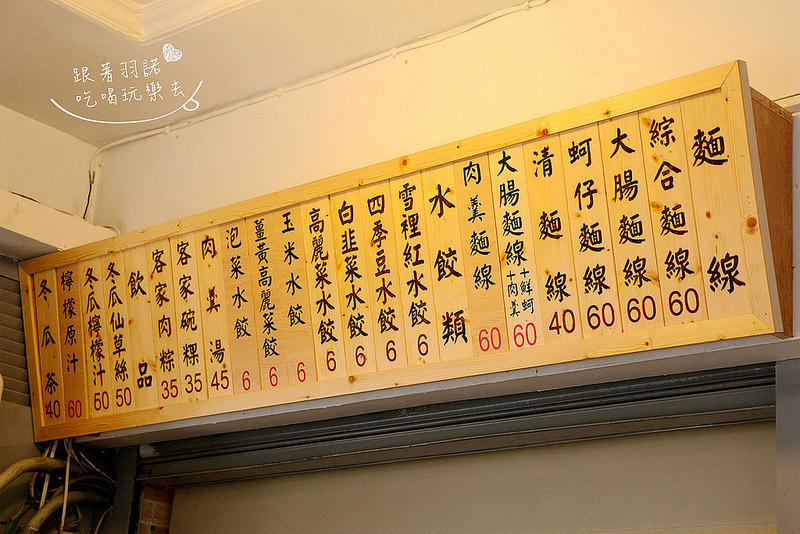 跟著羽諾
吃喝玩樂去
麵線
綜合麵線 60
大腸麵線 60
蚵仔麵線 60
清麵線 40
大腸麵線+鮮蚵+肉羹 60
肉羹麵線 60
水餃類
雪裡紅水餃 6
四季豆水餃 6
白韭菜水餃 6
高麗菜水餃 6
玉米水餃 6
薑黃高麗菜餃 6
泡菜水餃 6
肉羹湯 45
客家碗粿 35
客家肉粽 35
飲品
冬瓜仙草絲 50
冬瓜檸檬汁 50
檸檬原汁 60
冬瓜茶 40